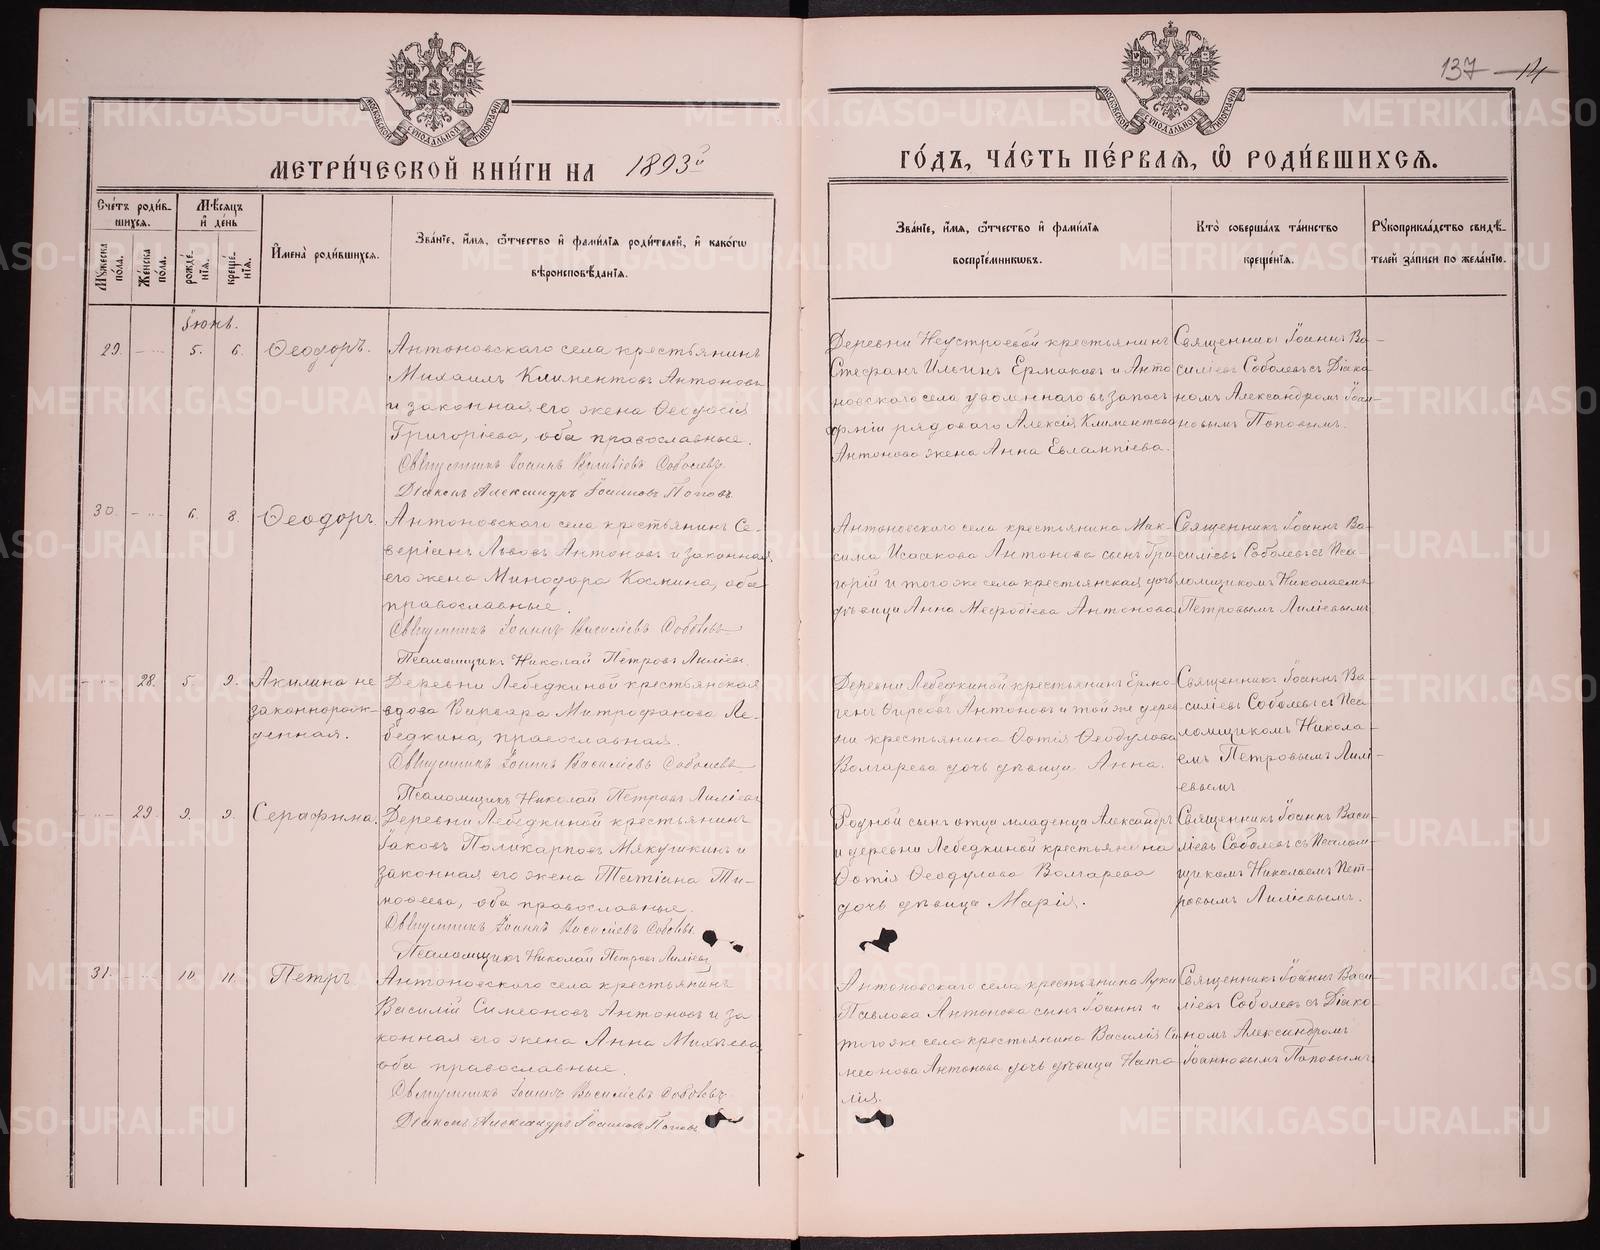 137 14
МОСКОВСКОЙ СѴНОДАЛЬНОЙ ТИПОГРАФІИ
МОСКОВСКОЙ СѴНОДАЛЬНОЙ ТИПОГРАФІИ
МЕТРИ́ЧЕСКОЙ КНИ́ГИ НА 1893й
ГО́ДЪ, ЧА́СТЬ ПЕ́РВАЯ, Ѿ РОДИ́ВШИХСЯ.
Сче́тъ роди́в-
шихся.
Мужеска по́ла.
Же́нска по́ла.
Мѣ́сяцъ
и҆ де́нь
рожде́-
нїя.
креще́-
нїя.
И҆мена̀ роди́вшихся.
Зва́нїе, и҆́мя, ѻ҆́тчество и҆ фами́лїя роди́телей, и҆ како́гѡ
вѣроисповѣ́данїя.
Зва́нїе, и҆́мя, ѻ҆́тчество и҆ фами́лїя
воспрїе́мникѡвъ.
Кто̀ соверша́лъ та́инство
креще́нїя.
Рукоприкла́дство свидѣ́-
телей за́писи по жела́нїю.
Іюнь.
29. 5. 6. Ѳеодоръ.
Антоновскаго села крестьянинъ
Михаилъ Климентовъ Антоновъ
и законная его жена Ѳеодосія
Григоріева, оба православные.
Свящнникъ Іоаннъ Василіевъ Соболевъ
Діаконъ Александръ Іоанновъ Поповъ
Деревни Неустроевой крестьянинъ
Стефанъ Ильинъ Ермаковъ и Анто
новскаго села уволеннаго въ запасъ
арміи рядоваго Алексія Климентова
Антонова жена Анна Евлампіева.
Священникъ Іоаннъ Ва-
силіевъ Соболевъ съ Діако
номъ Александромъ Іоан-
новымъ Поповымъ.
30. 6. 8. Ѳеодоръ
Антоновскаго села крестьянинъ Се-
веріанъ Львовъ Антоновъ и законная
его жена Минодора Космина, оба
православные.
Свящнникъ Іоаннъ Василіевъ Соболевъ
Псаломщикъ Николай Петровъ Лиліевъ
Антоновскаго села крестьянина Мак-
сима Исаакова Антонова сынъ Гри-
горій и того же села крестьянская дочь
дѣвица Анна Меѳодіева Антонова
Священникъ Іоаннъ Ва-
силіевъ Соболевъ съ Пса-
ломщикомъ Николаемъ
Петровымъ Лиліевымъ
28. 5. 9. Акилина не
законнорож-
денная.
Деревни Лебедкиной крестьянская
вдова Варвара Митрофанова Ле-
бедкина, православная.
Свящнникъ Іоаннъ Василіевъ Соболевъ
Псаломщикъ Николай Петровъ Лиліевъ
Деревни Лебедкиной крестьянинъ Ермо-
генъ Ѳирсовъ Антоновъ и той же дерев
ни крестьянина Фотія Ѳеодулова
Волгарева дочь дѣвица Анна.
Священникъ Іоаннъ Ва-
силіевъ Соболевъ съ Пса-
ломщикомъ Никола-
емъ Петровымъ Лилі-
евымъ
29. 9. 9. Серафима.
Деревни Лебедкиной крестьянинъ
Іаковъ Поликарповъ Мякушкинъ и
законная его жена Татіана Ти-
моѳеева, оба православные.
Свящнникъ Іоаннъ Василіевъ Соболевъ
Псаломщикъ Николай Петровъ Лиліевъ
Родной сынъ отца младенца Александръ
и деревни Лебедкиной крестьянина
Фотія Ѳеодулова Волгарева
дочь дѣвица Марія.
Священникъ Іоаннъ Васи-
ліевъ Соболевъ съ Псалом-
щикомъ Николаемъ Пет-
ровымъ Лиліевымъ.
31. 10. 11. Петръ
Антоновскаго села крестьянинъ
Василій Симеоновъ Антоновъ и за
конная его жена Анна Михеева,
оба православные.
Свящнникъ Іоаннъ Василіевъ Соболевъ
Діаконъ Александръ Іоанновъ Поповъ
Антоновскаго села крестьянина Луки
Павлова Антонова сынъ Іоаннъ и
того же села крестьянина Василія Си
меонова Антонова дочь дѣвица Ната
лія.
Священникъ Іоаннъ Васи-
ліевъ Соболевъ съ Діако
номъ Александромъ
Іоанновымъ Поповымъ